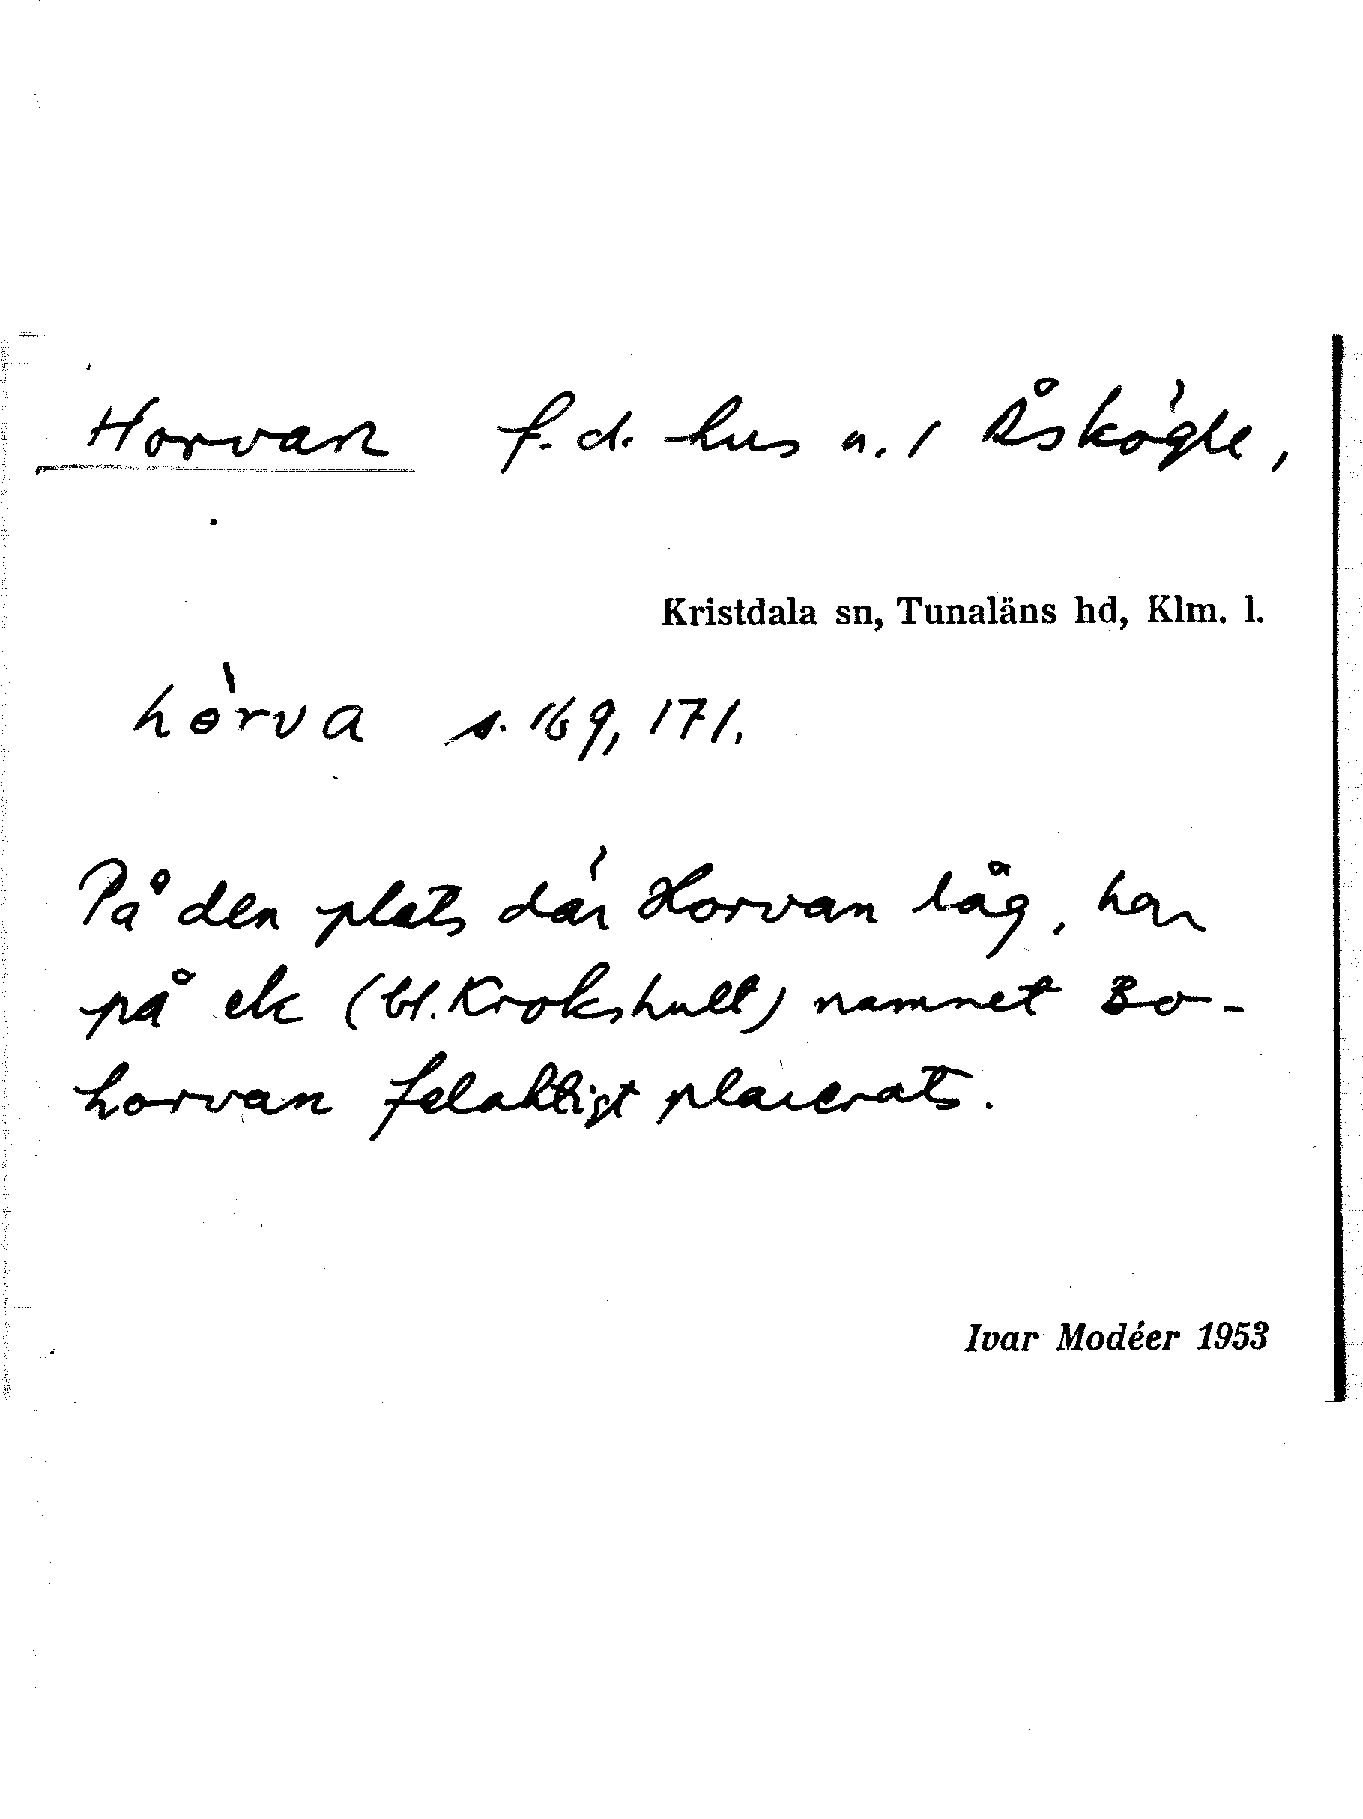 Horvan f.d. hus u. 1 Åskögle,
Kristdala sn, Tunaläns hd, Klm. l.
hòrva s. 169, 171.
På den plats där Horvan låg, har
på ek (bl. Krokshult) namnet Bo-
horvan felaktigt placerats.
Ivar Modéer 1953